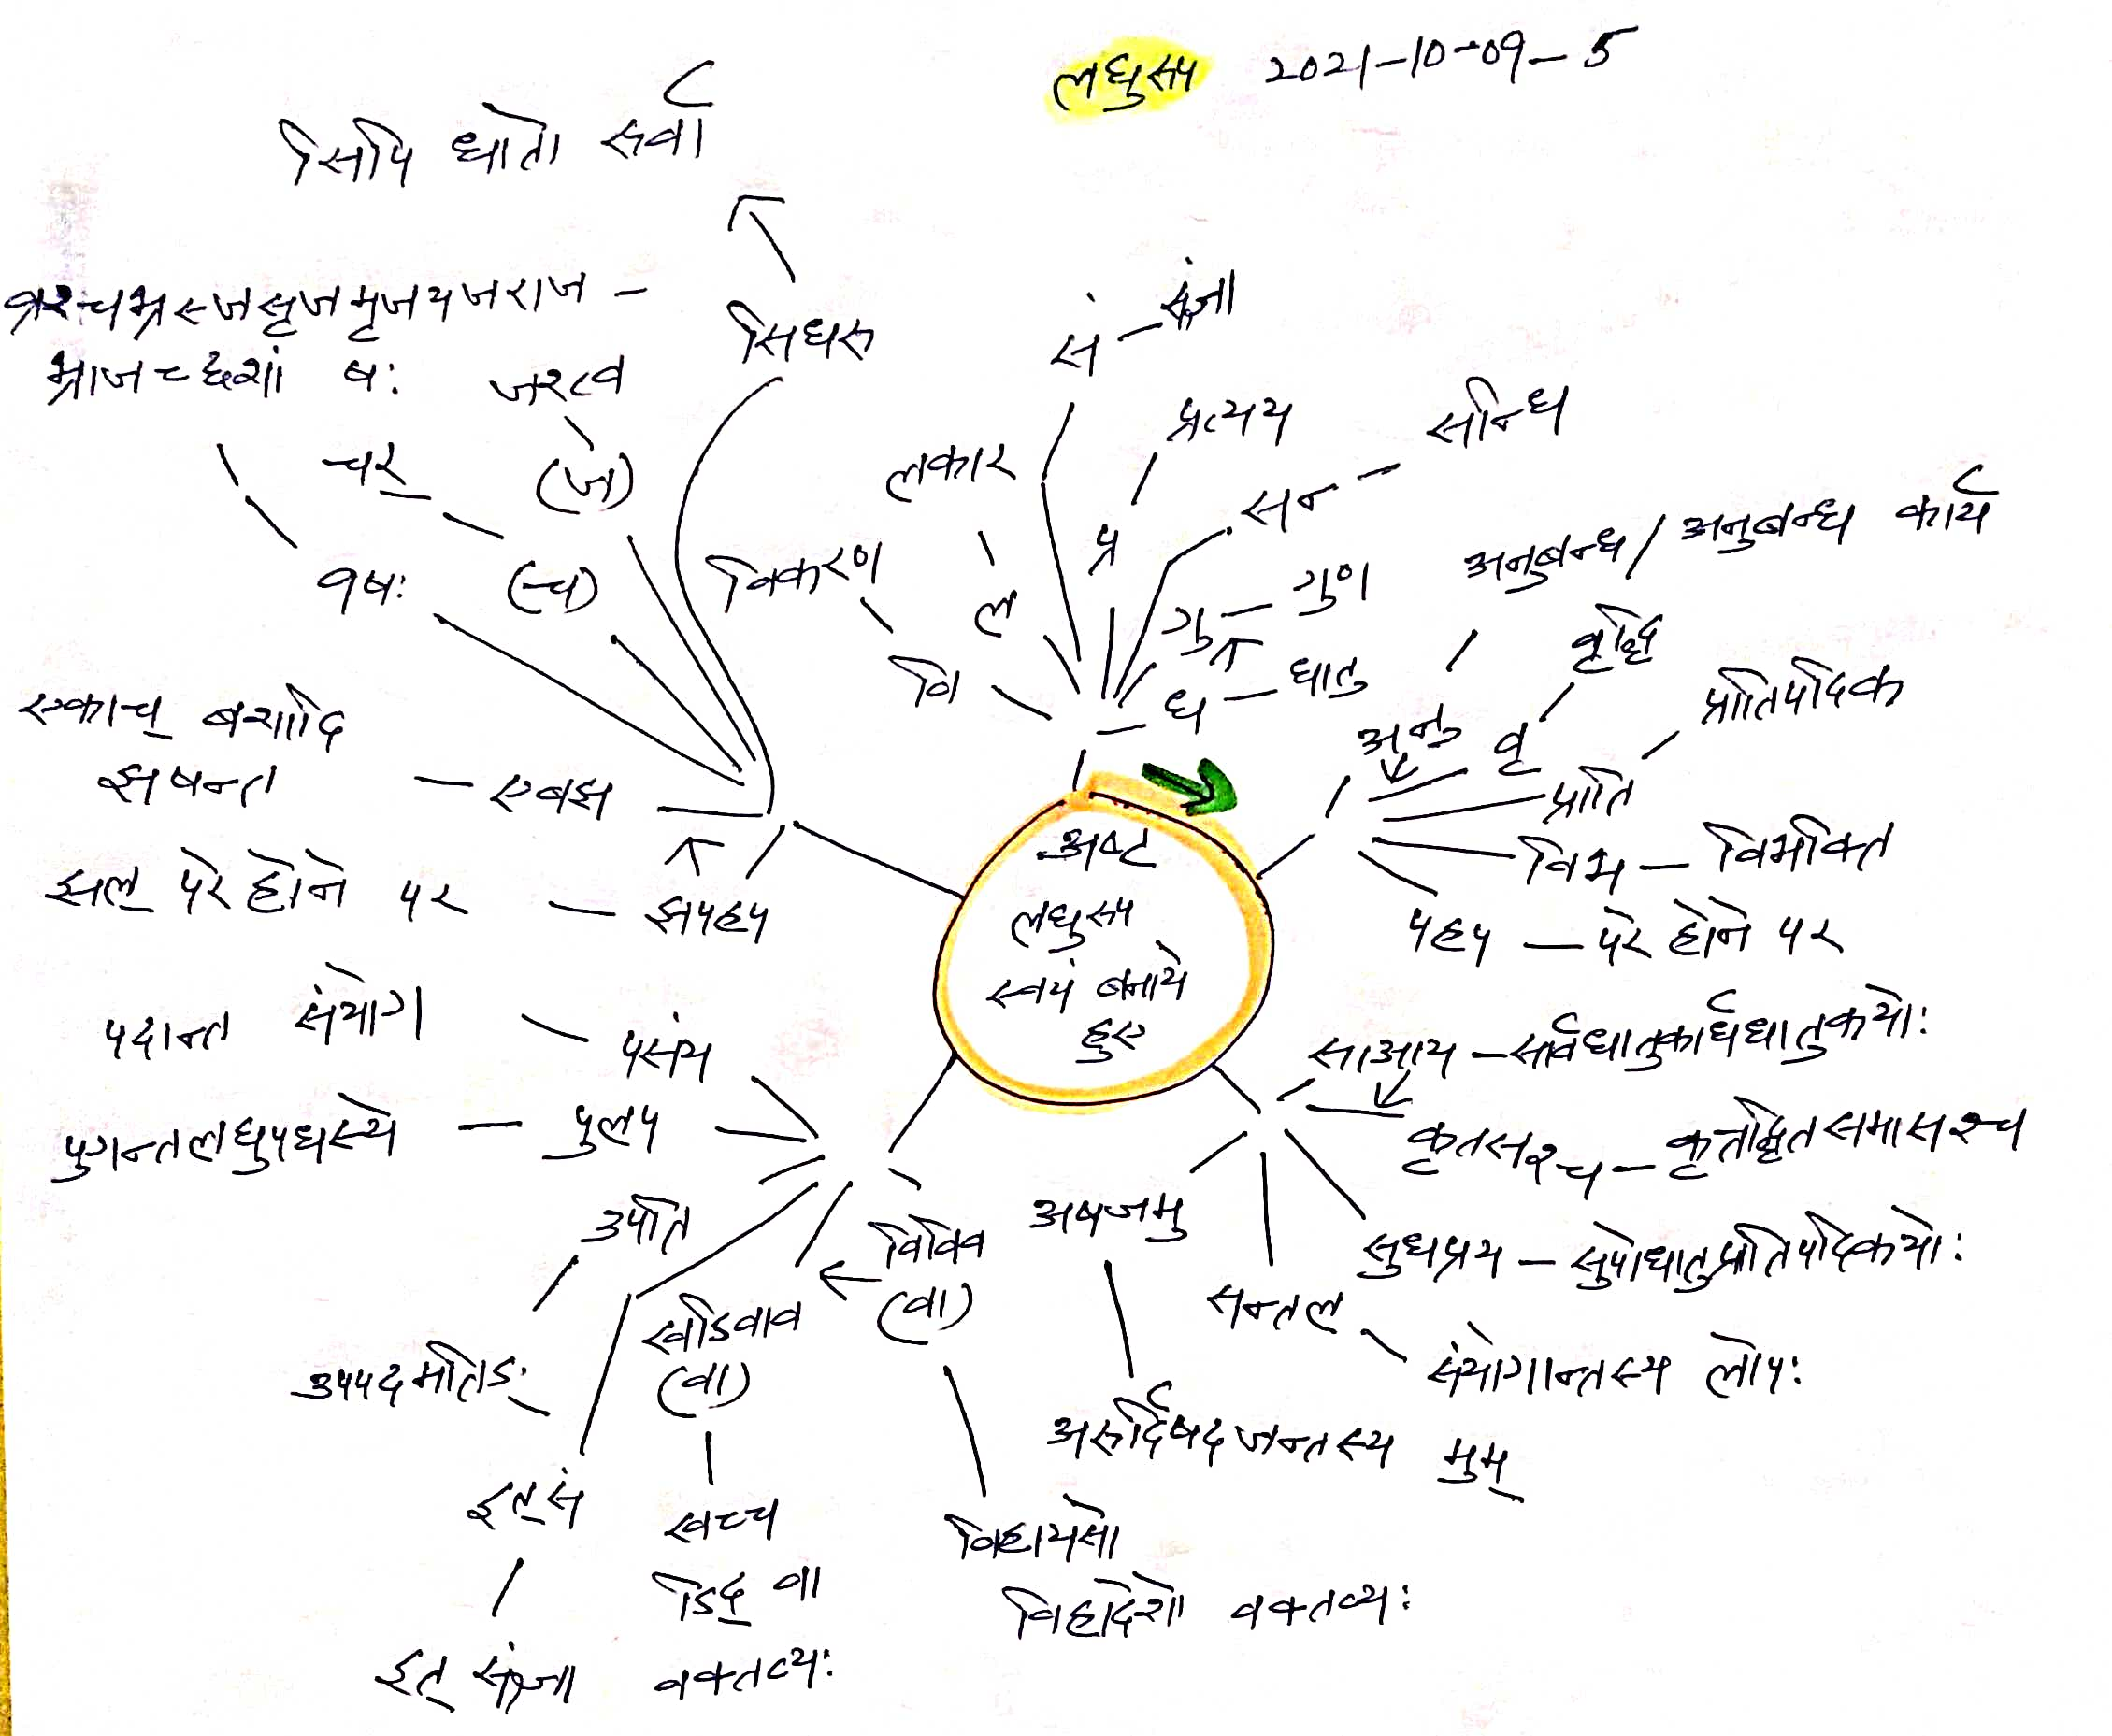 लघुरूप 2021-10-09-5
सिपि धातो रुर्वा
सिधरु
व्रश्चभ्रस्जसृजमृजयजराज-
भ्राजच्छशां षः
जश्त्व
चर्
(ज)
(च)
व्रषः
एकाच् बशादि
झषन्त - एबझ
झल् परे होने पर - झपहप
स - संज्ञा
प्रत्यय
प्र
सन - सन्धि
लकार
ल
विकरण
वि
गु - गुण
ध - धातु
अनुबन्ध / अनुबन्ध कार्य
अनु
वृद्धि
वृ
प्रातिपदिक
प्राति
विभ - विभक्ति
पहप - परे होने पर
अष्ट
लघुरूप
स्वयं बनाये
हुए
साआय - सार्वधातुकार्धधातुकयोः
कृतसश्च - कृत्तद्धितसमासश्च
सुधप्रय - सुपोधातुप्रातिपदिकयोः
सन्तल
संयोगान्तस्य लोपः
अषजमु
अरुर्द्विषदजन्तस्य मुम्
पदान्त संयोग - पसंय
पुगन्तलघुपधस्ये - पुलप
उपति
उपपदमतिङ्
इत्सं
इत् संज्ञा
खडिवाव
(वा)
खच्च
डिद् वा
वक्तव्यः
विविव
(वा)
विहायसो
विहादेशो वक्तव्यः